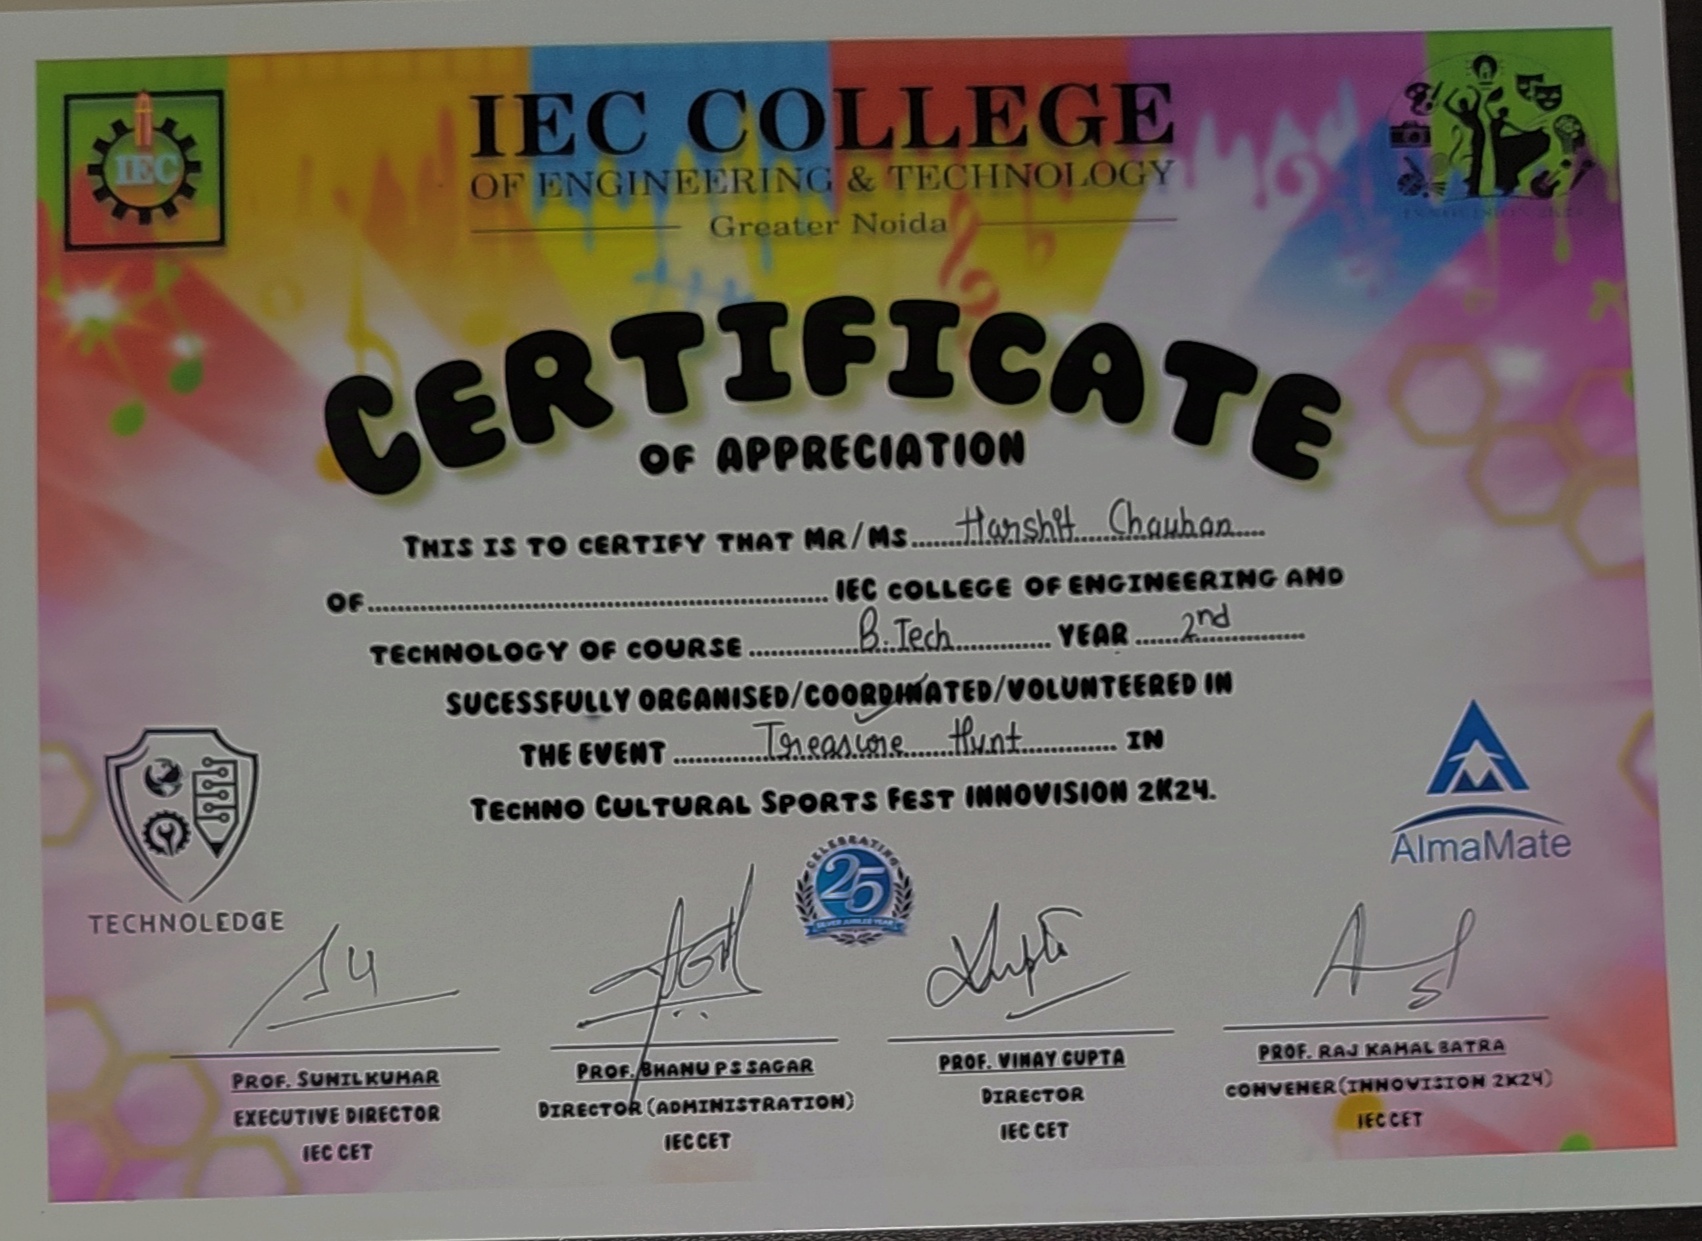 IEC
IEC COLLEGE
OF ENGINEERING & TECHNOLOGY
Greater Noida
CERTIFICATE
OF APPRECIATION
THIS IS TO CERTIFY THAT MR/MS Harshit Chauhan
OF IEC COLLEGE OF ENGINEERING AND
TECHNOLOGY OF COURSE B.Tech YEAR 2nd
SUCESSFULLY ORGANISED/COORDINATED/VOLUNTEERED IN
THE EVENT Treasure Hunt IN
TECHNO CULTURAL SPORTS FEST INNOVISION 2K24.
TECHNOLEDGE
CELEBRATING
25
SILVER JUBILEE YEAR
AlmaMate
PROF. SUNIL KUMAR
EXECUTIVE DIRECTOR
IEC CET
PROF. BHANU P S SAGAR
DIRECTOR (ADMINISTRATION)
IEC CET
PROF. VINAY GUPTA
DIRECTOR
IEC CET
PROF. RAJ KAMAL BATRA
CONVENER(INNOVISION 2K24)
IEC CET